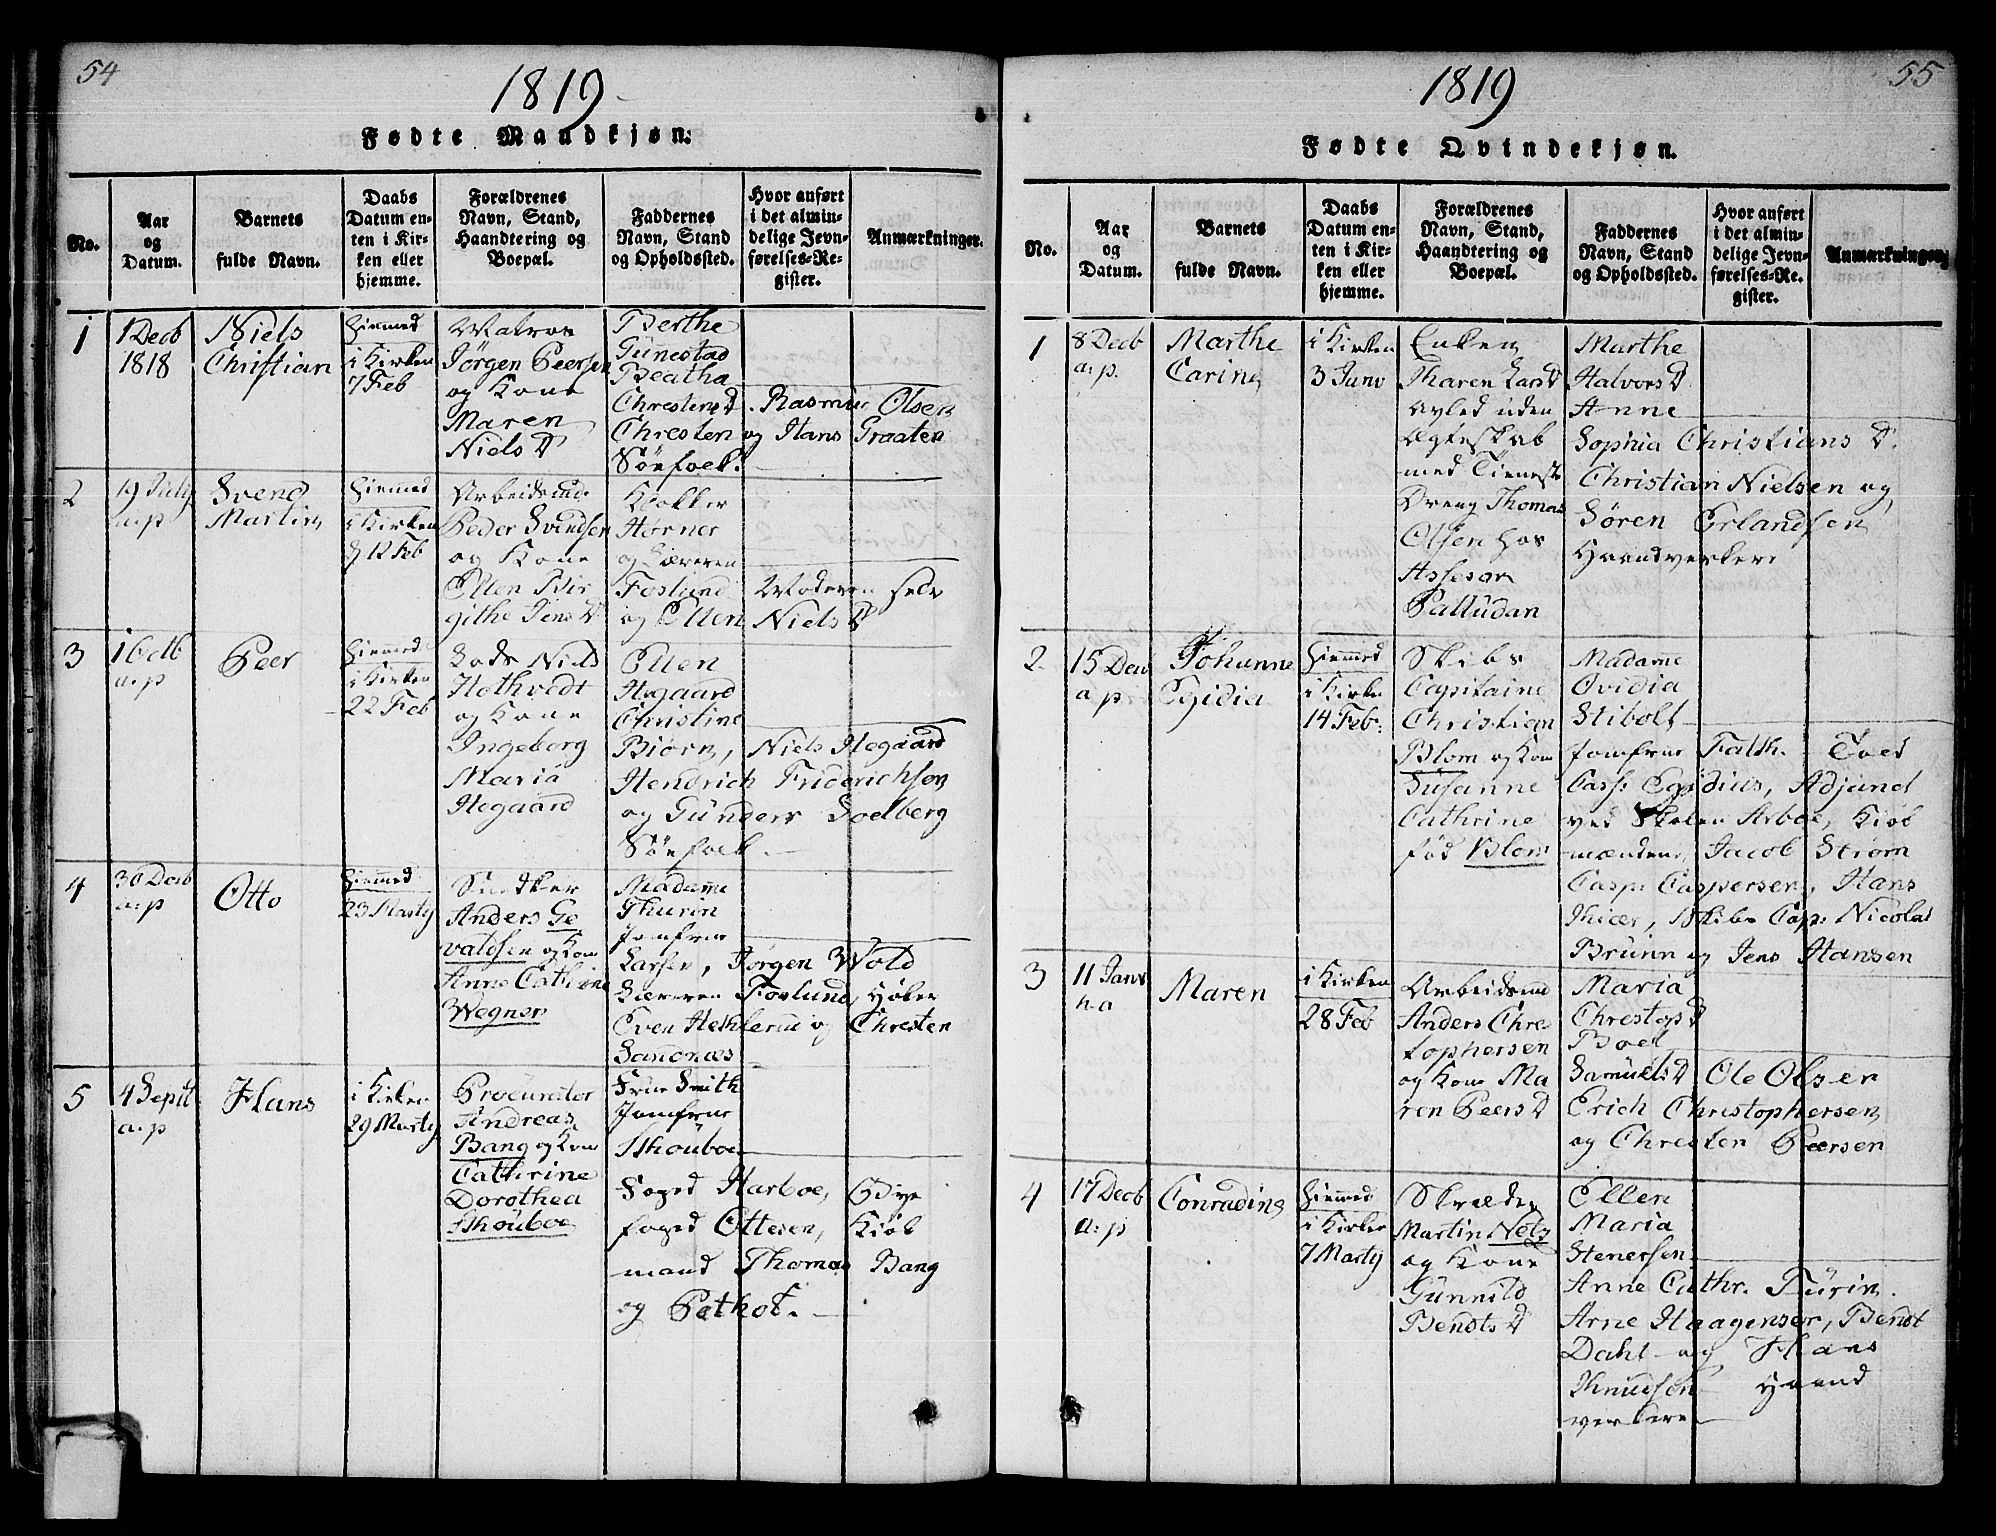 54
1819
Fødte Mandkjøn.
No.
Aar
og
Datum.
Barnets
fulde Navn.
Daabs
Datum en-
ten i Kir-
ken eller
hjemme.
Forældrenes
Navn, Stand,
Haandtering og
Boepæl.
Faddernes
Navn, Stand
og Opholdssted.
Hvor anført
i det almin-
delige Jevn-
førelses-Re-
gister.
Anmærkninger.
1
1 Decb
1818
Niels
Christian
Hiemmed
i Kirken
7 Feb
Jørgen Peersen
og Kone
Maren
Niels D
Berthe
Gunnestad
Beatha
Chrestens D. Rasmus Olsen
Chresten og Hans Graaten
Søefolk.
2
19 July
a. p
Svend
Martin
Hiemmed
i Kirken
d 12 Feb
Arbeidsmd.
Peder Svendsen
og Kone
Ellen Bir
githe Jens D
Klokker
Horner
og Læreren
Foslund Moderen selv
og Ellen Niels D
3
a. p
Peer
Hiemmed
i Kirken
22 Feb
Lods Niels
Hothvedt
og Kone
Ingeborg
Maria
Hegaard
Ellen
Hegaard
Christine
Biørn, Niels Hegaard
Hendrich Friderichsen
og Gunder Soelberg
Søefolk.
4
30 Decb
a. p
Otto
Hiemmed
23 Marty
Snedker
Anders Ge
valdsen og Kone
Anne Cathrine
Wegner
Madame
Thurin
Jomfrue
Larsen, Jørgen Wold
Læreren Foslund,
Even og Chresten
Sandnæs
5
4 Septb
a. p
Hans
i Kirken
29 Marty
Procurator
Andreas
Bang og Kone
Cathrine
Dorothea
Skouboe
Frue Smith
Jomfrue
Skouboe
Foged Harboe,
foged Ottesen, Kiøb
mand Thomas Bang
og
55
1819
Fødte Qvindekjøn.
No.
Aar
og
Datum.
Barnets
fulde Navn.
Daabs
Datum en-
ten i Kir-
ken eller
hjemme.
Forældrenes
Navn, Stand,
Haandtering og
Boepæl.
Faddernes
Navn, Stand
og Opholdssted.
Hvor anført
i det almin-
delige Jevn-
førelses-Re-
gister.
Anmærkninger.
1
8 Decb
a. p.
Marthe
Carine
i Kirken
3 Janv
Enken
Karen Lars D
avled uden
Ægteskab
med Tieneste
Dreng Thomas
Olsen hos
Assessor
Palludan
Marthe
Halvors D
Anne
Sophia Christians D.
Christian Nielsen og
Søren Erlandsen
Haandverkere
2.
15 Decb
a. p
Johanne
Egidia
Hiemmed
i Kirken
14 Feb:
Skibs
Capitaine
Christian
Blom og Kone
Susanne
Cathrine
fød Blom
Madame
Ovidia
Stibolt
Jomfrue Falch.
Cass: Egidius, Adjunct
ved Skolen Arboe, Kiøb
mændene, Jacob Strøm
Casp: Caspersen, Hans
Skibs Cap: Nicolai
Bruun og Jens Hansen
3
11 Janv
h. a
Maren
i Kirken
28 Feb
Arbeidsmd
Anders Chre
tophersen
og Kone Ma
ren Peers D
Maria
Chrestops D
Boel
Samuels D Ole Olsen
Erich Christophersen
og Chresten Peersen
4
17 Decb
a: p
Conradine
Hiemmed
i Kirken
7 Marty
Skræder
Martin Nels
og Kone
Gunnild
Bendts D
Ellen
Maria
Stenersen
Anne Cathr. Turin.
Arne Haagensen, Bendt
Dahl og Hans
Knudsen Haand
verkere